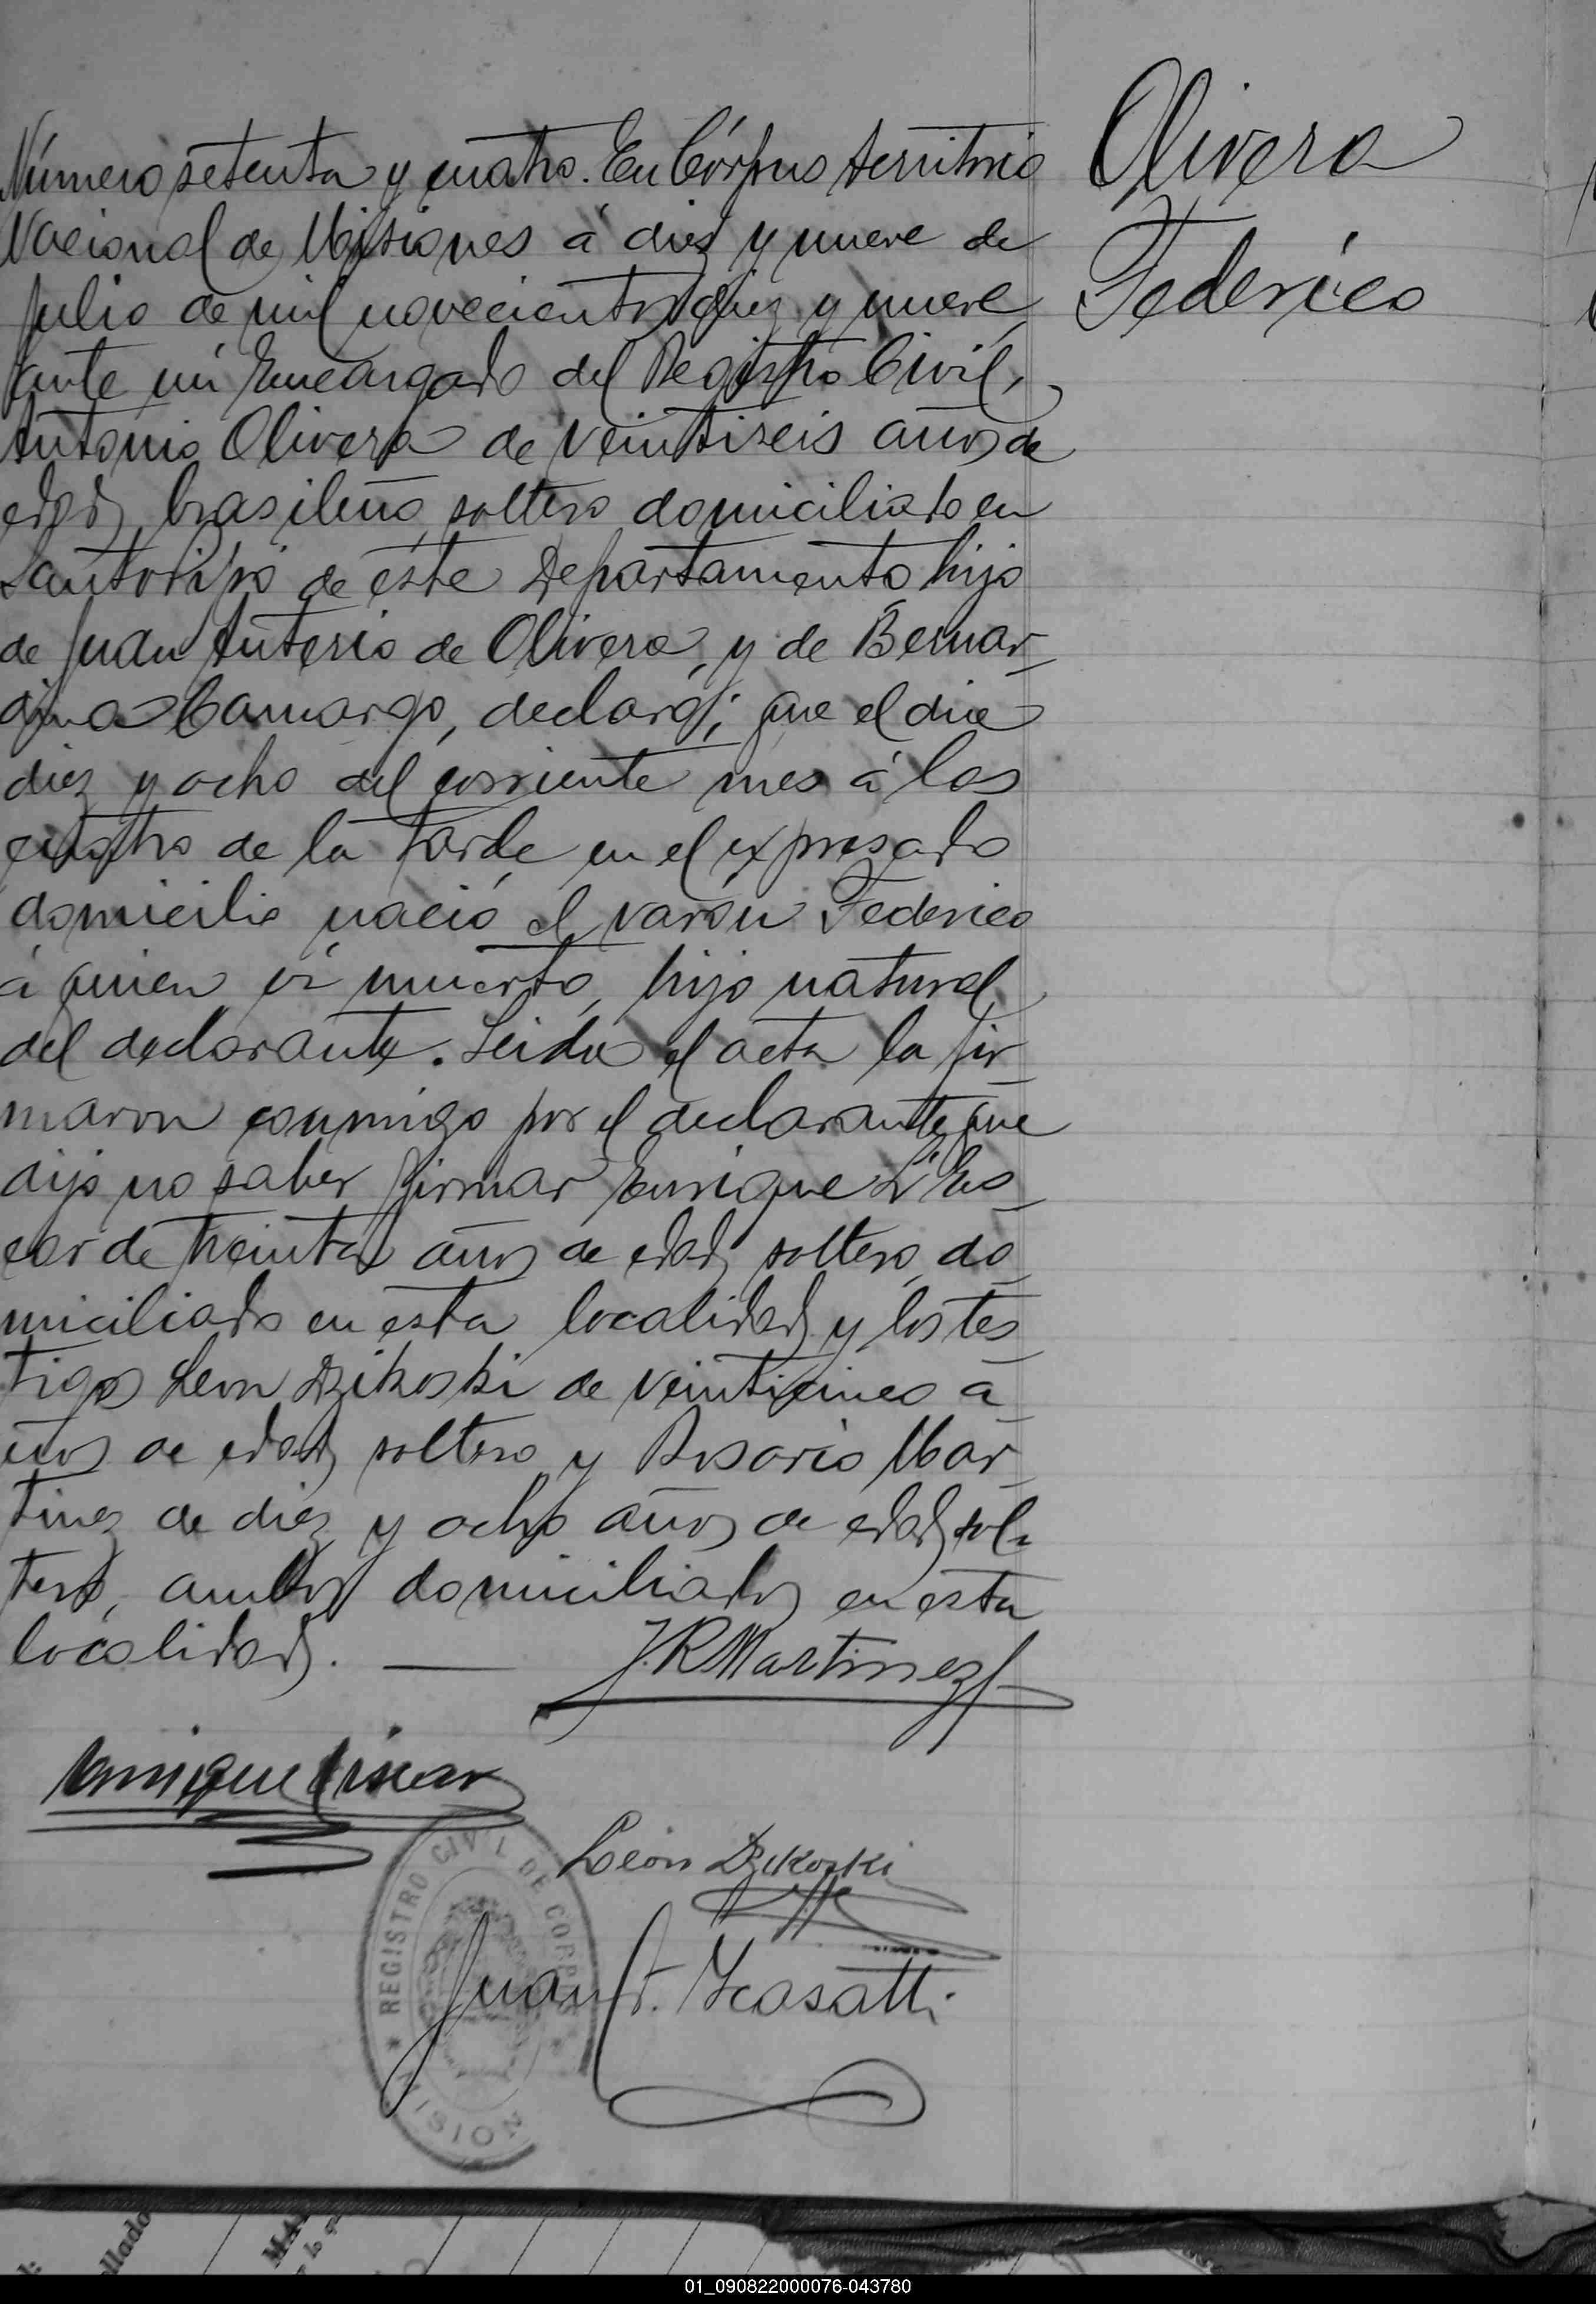 Olivera
Federico
Número setenta y cuatro. En Córpus territorio
Nacional de Misiones á diez y nueve de
Julio de mil novecientos diez y nueve,
ante mi Encargado del Registro Civil,
Antonio Olivera de veintiseis años de
edad, brasileño, soltero domiciliado en
Santo Pipó de éste Departamento hijo
de Juan Anterio de Olivera, y de Bernar-
dina Camargo, declaró; que el dia
diez y ocho del corriente mes á las
cuatro de la tarde en el expresado
domicilio nació el varón Federico
á quien ví muerto, hijo natural
del declarante. Leida el acta la fir-
maron conmigo por el declarante que
dijo no saber firmar Enrique
de treinta años de edad, soltero, do-
miciliado en esta localidad y los tes-
tigos Leon Dzikoski de veinticinco a-
ños de edad, soltero y Rosario Mar-
tinez de diez y ocho años de edad, sol-
tero, ambos domiciliados en esta
localidad. —
J. R Martinez
Enrique
León Dzikoski
REGISTRO CIVIL DE CORPUS
MISION
Juan
ollado
01_090822000076-043780